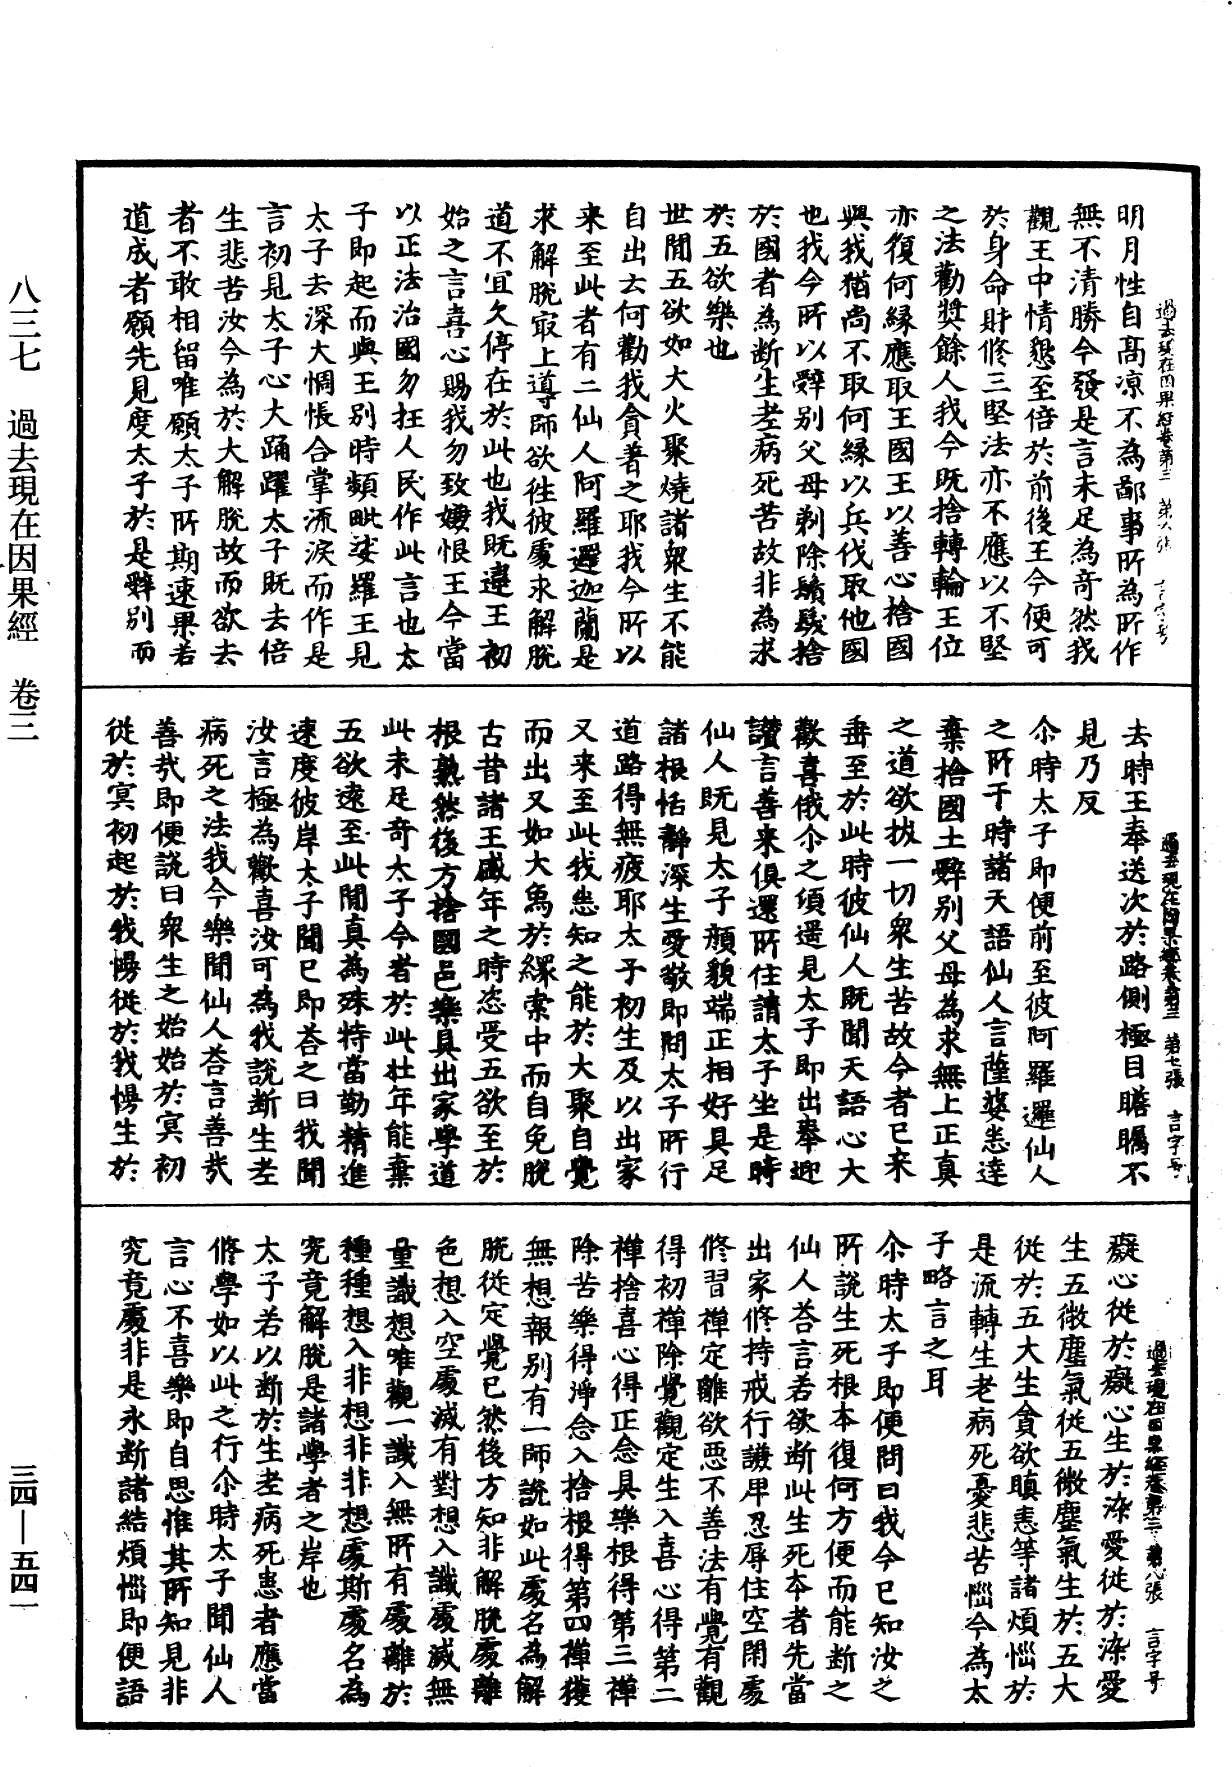 過去現在因果經卷第三　第六張　言字号
明月性自髙凉不為鄙事所為所作
無不清勝今發是言未足為竒然我
觀王中情懇至倍於前後王今便可
於身命財修三堅法亦不應以不堅
之法勸奬餘人我今既捨轉輪王位
亦復何縁應取王國王以善心捨國
與我猶尚不取何縁以兵伐取他國
也我今所以辤别父母剃除鬚髮捨
於國者為断生老病死苦故非為求
於五欲樂也
世間五欲如大火聚燒諸衆生不能
自出云何勸我貪著之耶我今所以
来至此者有二仙人阿羅邏迦蘭是
求解脫㝡上導師欲徃彼處求解脫
道不宜久停在於此也我既違王初
始之言喜心賜我勿致嫌恨王今當
以正法治國勿抂人民作此言也太
子即起而與王别時頻毗娑羅王見
太子去深大惆悵合掌流淚而作是
言初見太子心大踊躍太子既去倍
生悲苦汝今為於大解脫故而欲去
者不敢相留唯願太子所期速果若
道成者願先見度太子於是辤别而
過去現在因果經卷第三　第七張　言字号
去時王奉送次於路側極目瞻矚不
見乃反
尒時太子即便前至彼阿羅邏仙人
之所于時諸天語仙人言薩婆悉達
棄捨國土辤别父母為求無上正真
之道欲拔一切衆生苦故今者已来
垂至於此時彼仙人既聞天語心大
歡喜俄尒之頃遥見太子即出奉迎
讃言善来俱還所住請太子坐是時
仙人既見太子顔貌端正相好具足
諸根恬靜深生愛敬即問太子所行
道路得無疲耶太子初生及以出家
又来至此我悉知之能於大聚自覺
而出又如大象於繯索中而自免脫
古昔諸王盛年之時恣受五欲至於
根熟然後方捨國邑樂具出家學道
此未足竒太子今者於此壯年能棄
五欲遠至此間真為殊特當勤精進
速度彼岸太子聞已即荅之曰我聞
汝言極為歡喜汝可為我說断生老
病死之法我今樂聞仙人荅言善哉
善哉即便說曰衆生之始始於冥初
從於冥初起於我慢從於我慢生於
過去現在因果經卷第三　第八張　言字号
癡心從於癡心生於染愛從於染愛
生五微塵氣從五微塵氣生於五大
從於五大生貪欲瞋恚等諸煩惱於
是流轉生老病死憂悲苦惱今為太
子略言之耳
尒時太子即便問曰我今已知汝之
所說生死根本復何方便而能断之
仙人荅言若欲断此生死本者先當
出家修持戒行謙卑忍辱住空閑處
修習禪定離欲惡不善法有覺有觀
得初禪除覺觀定生入喜心得第二
禪捨喜心得正念具樂根得第三禪
除苦樂得淨念入捨根得第四禪獲
無想報别有一師說如此處名為解
脫從定覺已然後方知非解脫處離
色想入空處滅有對想入識處滅無
量識想唯觀一識入無所有處離於
種種想入非想非非想處斯處名為
究竟解脫是諸學者之岸也
太子若以断於生老病死患者應當
修學如以此之行尒時太子聞仙人
言心不喜樂即自思惟其所知見非
究竟處非是永断諸結煩惱即便語
八三七　過去現在因果經　卷三
三四—五四一